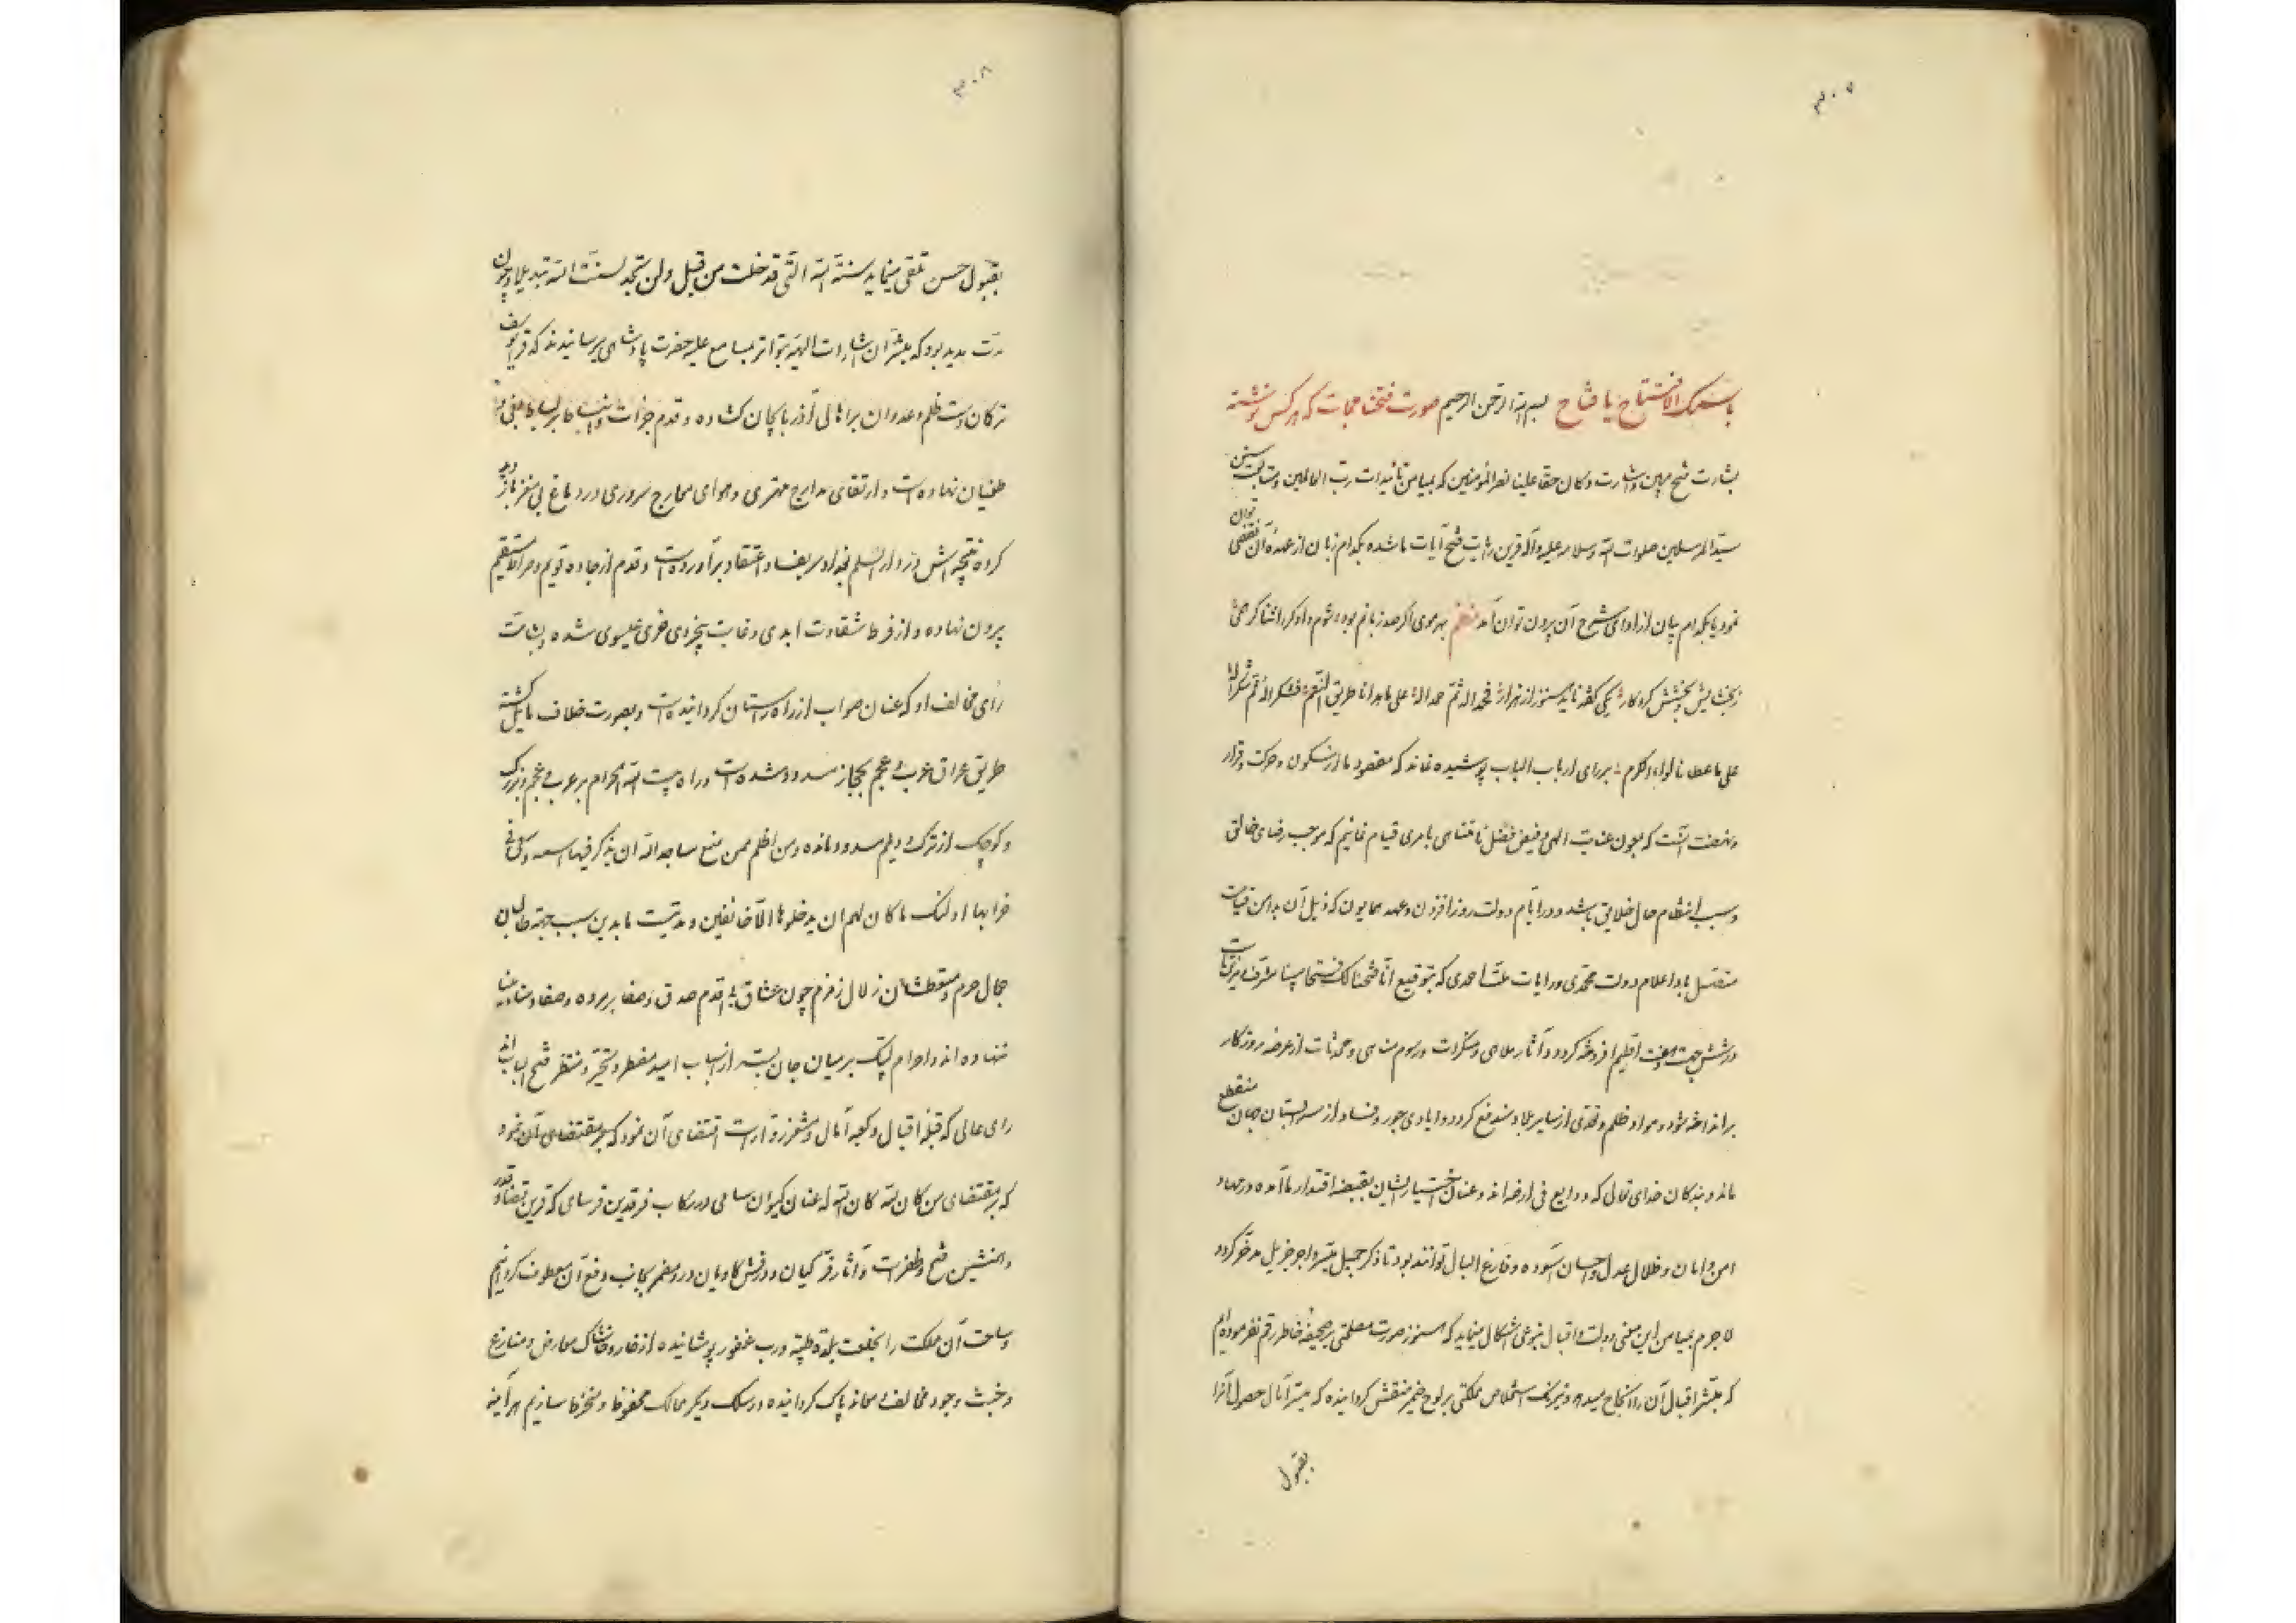 ۳۰۷
باسمک الافتتاح یا فتاح بسم الله الرحمن الرحیم صورت فتحنامجات که هر کس نوشته
بشارت فتح مبین و اشارت و کان حقا علینا نصر المؤمنین که بمیامن تأییدات رب العالمین و متابعت سنن
سید المرسلین صلوات الله و سلامه علیه و آله قرین رایت فتح آیات ما شده بکدام زبان از عهده آن تفصی توان
نمود یا بکدام بیان از ادای شرح آن بیرون توان آمد نظم بهر موی اگر صد زبانم بود شوم داوکر را ثناکر
ز بخشایش و بخشش کردکار یکی گفته ناید هنوز از هزار فحمدا له ثم حمدا له علی ما هدانا طریق النعم فشکرا له ثم شکرا له
علی ما عطانا لواء الکرم بر رای ارباب الباب پوشیده نماند که مقصود ما از سکون و حرکت و قرار
و نهضت آنست که بعون عنایت الهی و فیض فضل نامتناهی بامری قیام نمائیم که موجب رضای خالق
و سبب انتظام حال خلایق باشد و در ایام دولت روزافزون و عهد همایون که ذیل آن بدامن قیامت
متصل باد اعلام دولت محمدی و رایات ملت احمدی که بتوقیع انا فتحنا لک فتحا مبینا مشرف و مزین است
در شش جهت و هفت اقلیم افروخته کردد و آثار ملاهی و منکرات و رسوم مناهی و محدثات از عرصه روزکار
برانداخته شود و مواد ظلم و تعدی از سایر بلاد مندفع کردد و ایادی جور و فساد از سر بستان جهان منقطع
ماند و بندکان خدای تعالی که ودایع فی ارضه اند و عنان اختیار ایشان بقبضه اقتدار ما آمده در مهاد
امن و امان و ظلال عدل و احسان آسوده و فارغ البال توانند بود تا ذکر جمیل میسر و اجر جزیل مدخر کردد
لا جرم بمیامن این معنی دولت و اقبال بنوعی اشکال مینماید که هنوز صورت مصلحتی بر صحیفه خاطر رقم نفرموده ایم
که مبشر اقبال آن را بانجاح میرساند و نیرنک استخلاص مملکتی بر لوح ضمیر منقش کردانیده که میسر آمال حصول آنرا
بقبول
۳۰۸
بقبول حسن تلقی مینماید سنة الله التی قد خلت من قبل ولن تجد لسنت الله تبدیلا و چون
مدت مدید بود که مبشران اشارات الهیه بتواتر بمسامع علیه حضرت پادشاهی میرسانیدند که قرایوسف
ترکمان دست ظلم و عدوان بر اهالی آذربایجان کشاده و قدم جرات و انبساط بر بساط بغی و
طغیان نهاده است و ارتقای مدارج مهتری و هوای معارج سروری در دماغ بی مغز باز دید
کرده نتیجه اش در دار السلم بغداد سر بفساد اعتقاد برآورده است و قدم از جاده قویم و صراط مستقیم
بیرون نهاده و از فرط شقاوت ابدی و غایت بیخردی غری عیسوی شده و بشامت
رای مخالف او که عنان صواب از راه راستان کردانیده است و بصورت خلاف مایل کشته
طریق عراق عرب و عجم بحجاز مسدود شده است و راه بیت الله الحرام بر عرب و عجم و بزرک
و کوچک از ترک و دیلم مسدود مانده ومن اظلم ممن منع مساجد الله ان یذکر فیها اسمه وسعی فی
خرابها اولئک ما کان لهم ان یدخلوها الا خائفین و مدتیست تا بدین سبب جهته طالبان
جمال حرم و متعطشان زلال زمزم چون عشاق بی اقدم صدق و صفا بر مروه و صفا و منا
ننهاده اند و احرام لبیک بر میان جان بسته از اسباب امید مضطر و متحیر و منتظر فتح الباب اند
رای عالی که قبله اقبال و کعبه آمال و مشعر زوار است اقتضای آن نمود که بر مقتضای آن نمود
که بر مقتضای من کان لله کان الله له عنان کیوان سامی و رکاب فرقدین فرسای که قرین قضا و قدر
و همنشین فتح و ظفر است و آثار فر کیان و درفش کاویان درو مضمر بجانب دفع آن معطوف کردانیم
و ساحت آن مملکت را بخلعت بلدة طیبة و رب غفور پوشانیده از خار و خاشاک معارض و منازع
و خبث وجود مخالف و معاند پاک کردانیده در سلک دیکر ممالک محفوظ و منخرط سازیم هر آینه